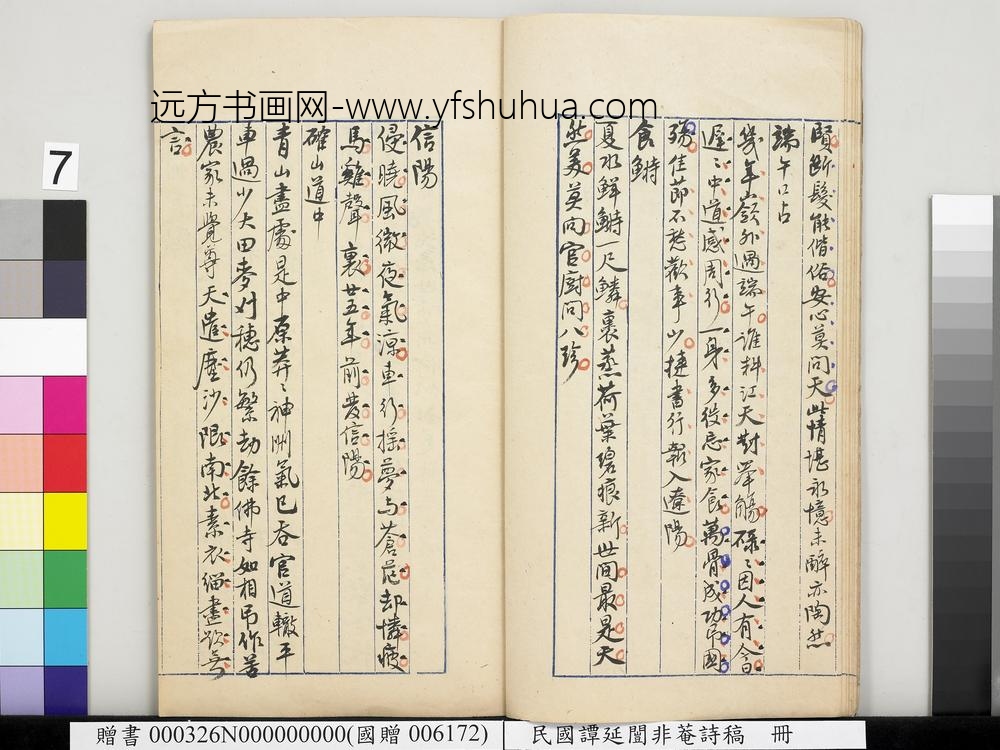 远方书画网-www.yfshuhua.com
賢斷髮能偕俗安心莫問天此情堪永憶未醉亦陶然
端午口占
幾年嶺外過端午誰料江天對舉觴碌〻因人有今日
遲〻中道感周行一身多役忘家食萬骨成功帀國
殤佳節不愁歡事少捷書行報入遼陽
食鰣
夏水鮮鰣一尺鱗裏蒸荷葉碧痕新世間最是天
然美莫向官廚問八珍
信陽
侵曉風微夜氣涼車行搖夢与蒼茫却憐疲
馬雞聲裏廿五年前發信陽
確山道中
青山盡處是中原莽〻神州氣已吞官道轍平
車過少大田麥刈穗仍繁劫餘佛寺如相弔作苦
農家未覺尊天遣塵沙限南北素衣緇盡欲無
言
7
贈書 000326N000000000(國贈 006172)
民國譚延闓非菴詩稿 冊